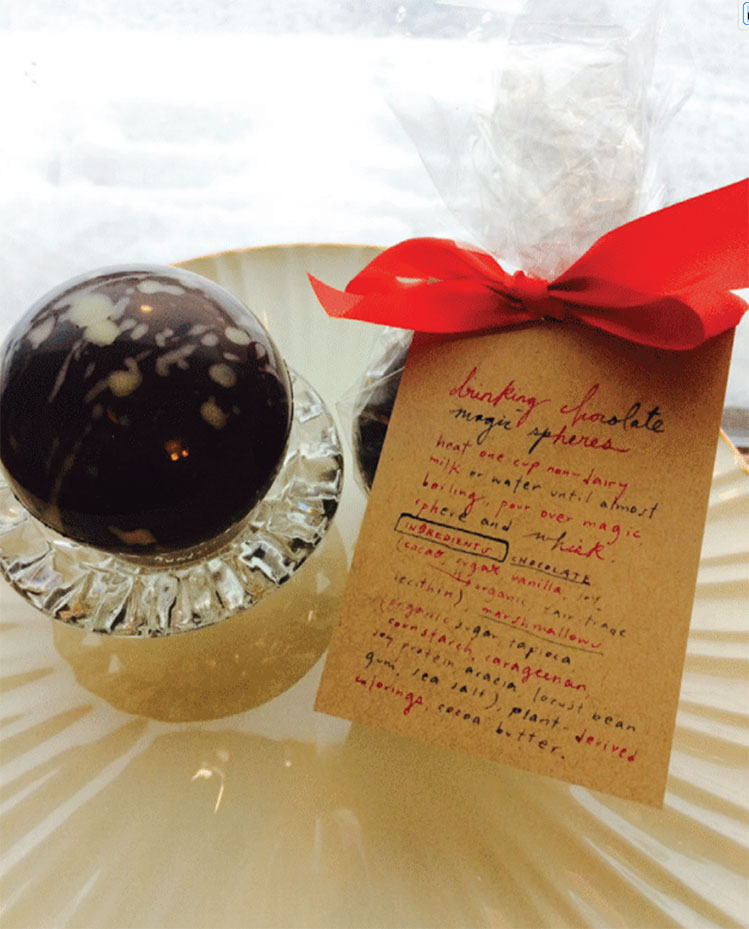 drinking chocolate
magic spheres
heat one cup non-dairy
milk or water until almost
boiling, pour over magic
sphere and whisk.
INGREDIENTS CHOCOLATE
(cacao, sugar, vanilla, soy
lecithin), organic, fair trade
marshmallows
(organic sugar, tapioca
cornstarch, carageenan,
soy protein, acacia, locust bean
gum, sea salt), plant-derived
colorings, cocoa butter.